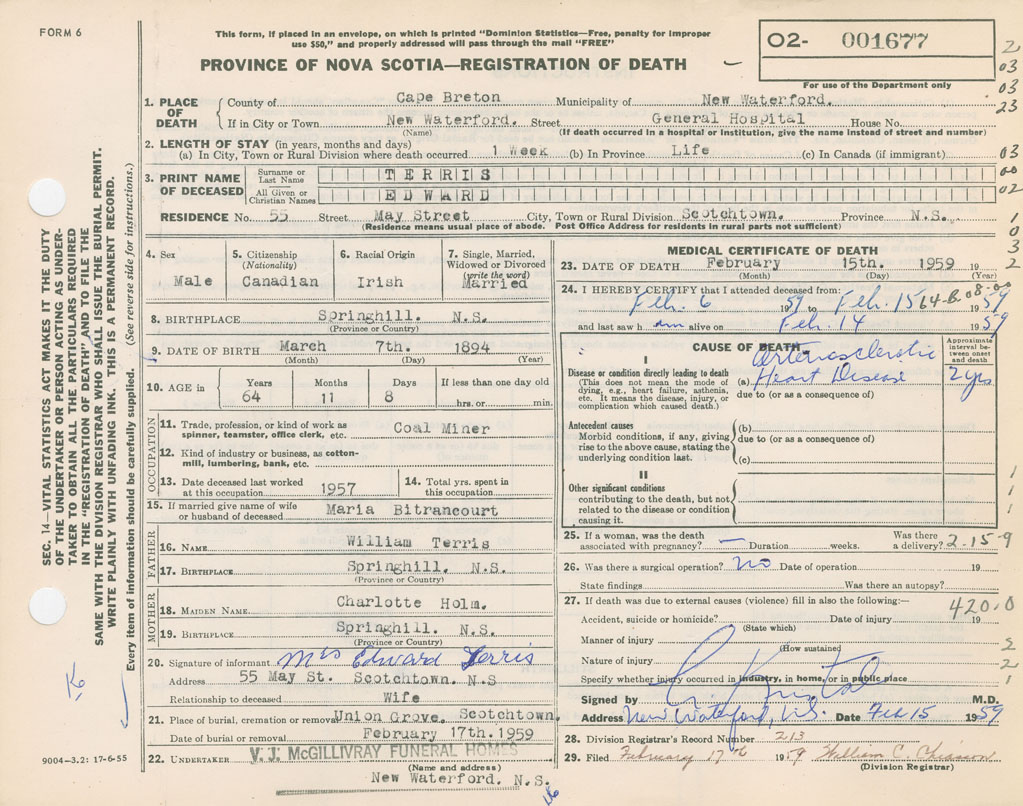 FORM 6
This form, if placed in an envelope, on which is printed "Dominion Statistics—Free, penalty for improper
use $50," and properly addressed will pass through the mail "FREE"
PROVINCE OF NOVA SCOTIA—REGISTRATION OF DEATH
02- 001677
For use of the Department only
2
03
03
23
03
00
02
1
0
3
2
1. PLACE OF DEATH
County of Cape Breton Municipality of New Waterford.
If in City or Town New Waterford. Street General Hospital House No.
(Name) (If death occurred in a hospital or institution, give the name instead of street and number)
2. LENGTH OF STAY (in years, months and days)
(a) In City, Town or Rural Division where death occurred 1 Week (b) In Province Life (c) In Canada (if immigrant)
3. PRINT NAME OF DECEASED
Surname or Last Name TERRIS
All Given or Christian Names EDWARD
RESIDENCE No. 55 Street May Street City, Town or Rural Division Scotchtown. Province N.S.
(Residence means usual place of abode. Post Office Address for residents in rural parts not sufficient)
4. Sex
Male
5. Citizenship (Nationality)
Canadian
6. Racial Origin
Irish
7. Single, Married, Widowed or Divorced (write the word)
Married
8. BIRTHPLACE Springhill. N.S.
(Province or Country)
9. DATE OF BIRTH March 7th. 1894
(Month) (Day) (Year)
10. AGE in Years Months Days If less than one day old
64 11 8 hrs. or min.
OCCUPATION
11. Trade, profession, or kind of work as spinner, teamster, office clerk, etc. Coal Miner
12. Kind of industry or business, as cotton-mill, lumbering, bank, etc.
13. Date deceased last worked at this occupation 1957
14. Total yrs. spent in this occupation
15. If married give name of wife or husband of deceased Maria Bitrancourt
FATHER
16. NAME William Terris
17. BIRTHPLACE Springhill. N.S.
(Province or Country)
MOTHER
18. MAIDEN NAME Charlotte Holm.
19. BIRTHPLACE Springhill. N.S.
(Province or Country)
20. Signature of informant Mrs Edward Terris
Address 55 May St. Scotchtown. N.S
Relationship to deceased Wife
21. Place of burial, cremation or removal Union Grove. Scotchtown.
Date of burial or removal February 17th.1959
22. UNDERTAKER V. J. McGILLIVRAY FUNERAL HOMES
(Name and address)
New Waterford. N.S.
MEDICAL CERTIFICATE OF DEATH
23. DATE OF DEATH February 15th. 1959 19
(Month) (Day) (Year)
24. I HEREBY CERTIFY that I attended deceased from:
64-B-08-00
Feb. 6 1959 to Feb. 15 1959
and last saw h im alive on Feb. 14 1959
CAUSE OF DEATH
Approximate interval between onset and death
I
Disease or condition directly leading to death
(This does not mean the mode of dying, e.g., heart failure, asthenia, etc. It means the disease, injury, or complication which caused death.)
(a) Arteriosclerotic Heart Disease 2 yrs
due to (or as a consequence of)
Antecedent causes
Morbid conditions, if any, giving rise to the above cause, stating the underlying condition last.
(b)
due to (or as a consequence of)
(c)
II
Other significant conditions
contributing to the death, but not related to the disease or condition causing it.
1
1
1
25. If a woman, was the death associated with pregnancy? — Duration weeks. Was there a delivery?
2-15-9
26. Was there a surgical operation? no Date of operation 19
State findings Was there an autopsy?
27. If death was due to external causes (violence) fill in also the following:—
420.0
Accident, suicide or homicide? Date of injury 19
(State which)
Manner of injury
(How sustained)
Nature of injury
Specify whether injury occurred in industry, in home, or in public place
2
2
1
Signed by M.D.
Address New Waterford, N.S. Date Feb 15 1959
28. Division Registrar's Record Number 213
29. Filed February 17th 1959 William C. Chiasson
(Division Registrar)
SEC. 14—VITAL STATISTICS ACT MAKES IT THE DUTY
OF THE UNDERTAKER OR PERSON ACTING AS UNDER-
TAKER TO OBTAIN ALL THE PARTICULARS REQUIRED
IN THE "REGISTRATION OF DEATH" AND TO FILE THE
SAME WITH THE DIVISION REGISTRAR WHO SHALL ISSUE THE BURIAL PERMIT.
WRITE PLAINLY WITH UNFADING INK. THIS IS A PERMANENT RECORD.
Every item of information should be carefully supplied. (See reverse side for instructions.)
9004-3.2: 17-6-55